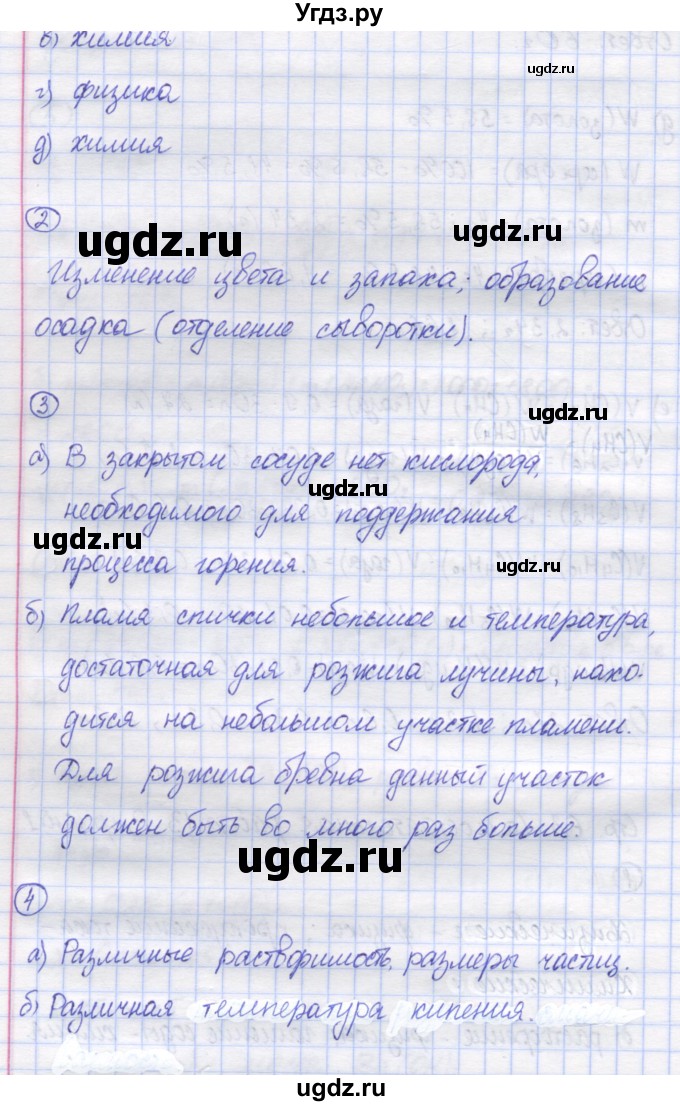 Угдз.ру
в) химия
ugdz.ru
г) физика
д) химия
2
ugdz.ru
ugdz.ru
Изменение цвета и запаха; образование
осадка (отделение сыворотки).
3
ugdz.ru
а) В закрытом сосуде нет кислорода,
ugdz.ru
необходимого для поддержания
ugdz.ru
ugdz.ru
процесса горения.
б) Пламя спички небольшое и температура,
достаточная для розжига лучины, нахо-
дится на небольшом участке пламени.
Для розжига бревна данный участок
должен быть во много раз больше.
ugdz.ru
4
а) Различные растворимость, размеры частиц.
б) Различная температура кипения.
ugdz.ru